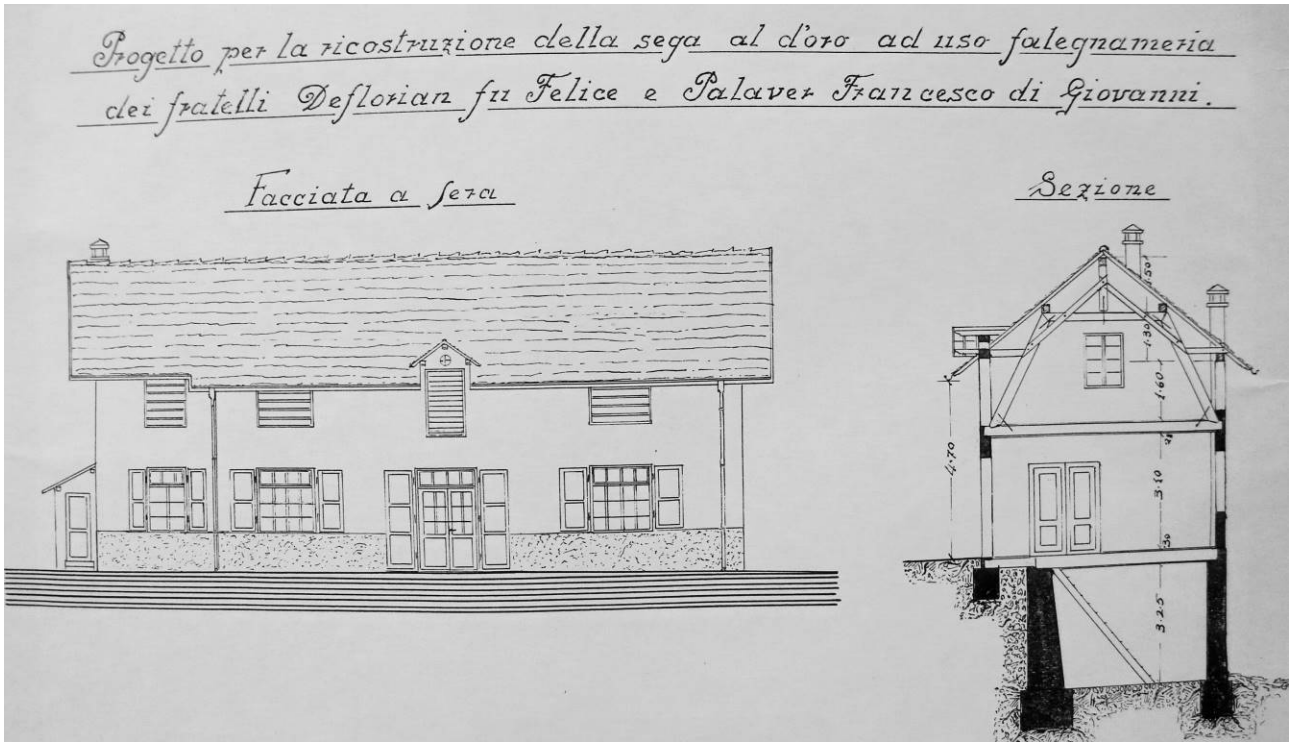 Progetto per la ricostruzione della sega al d'oro ad uso falegnameria
dei fratelli Deflorian fu Felice e Palaver Francesco di Giovanni.
Facciata a sera
Sezione
1.50
1.30
1.60
4.70
3.10
30
3.25